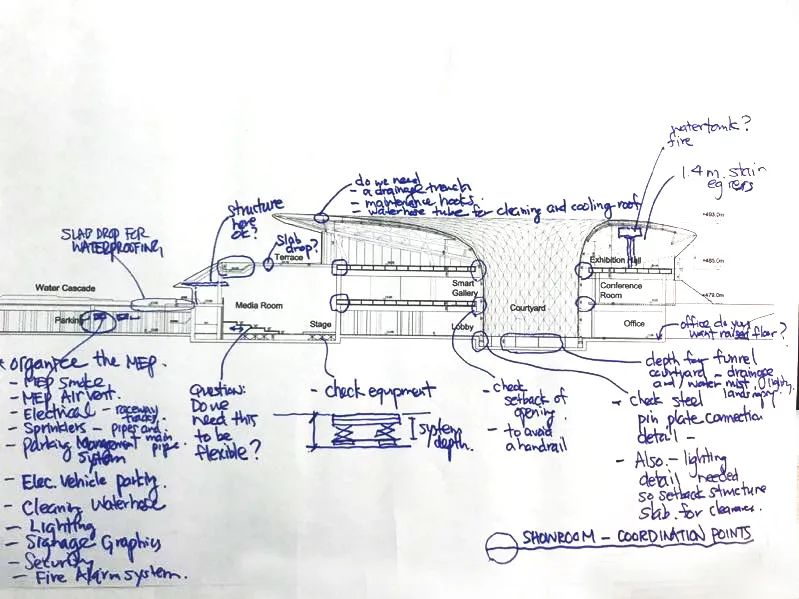 watertank?
fire
1.4 m. stair
egress
do we need
- a drainage trench
- maintenance hooks.
- waterhose tube for cleaning and cooling roof
structure
here
ok?
slab
drop?
SLAB DROP FOR
WATERPROOFING
+493.0m
+485.0m
+479.0m
Terrace
Exhibition Hall
Water Cascade
Smart
Gallery
Conference
Room
Media Room
Courtyard
Parking
Stage
Lobby
Office
office do you
want raised floor?
organize the MEP.
- MEP Smoke
- MEP Air vent.
- Electrical - raceway
tracks
- Sprinklers - pipes and
main
pipe.
- Parking Management
System
- Elec. Vehicle parking.
- Cleaning Waterhose
- Lighting
- Signage Graphics
- Security
- Fire Alarm System.
Question:
Do we
need this
to be
flexible?
- check equipment
system
depth.
- check
setback of
opening
- to avoid
a handrail
depth for funnel
courtyard - drainage
and water mist, lighting
landscaping.
- check steel
pin plate connection
detail -
- Also - lighting
detail needed
so setback structure
slab. for clearance.
SHOWROOM - COORDINATION POINTS